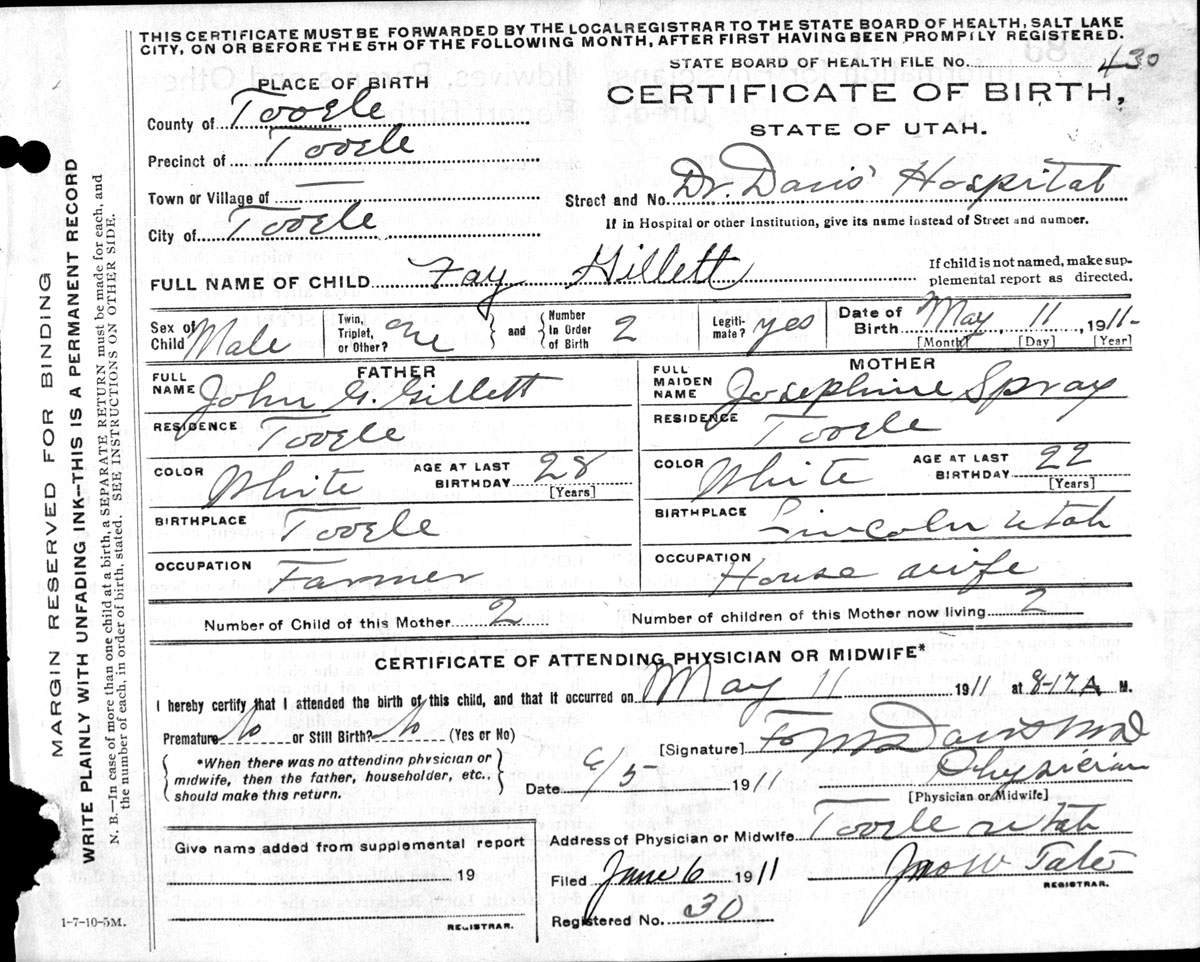 THIS CERTIFICATE MUST BE FORWARDED BY THE LOCAL REGISTRAR TO THE STATE BOARD OF HEALTH, SALT LAKE
CITY, ON OR BEFORE THE 5TH OF THE FOLLOWING MONTH, AFTER FIRST HAVING BEEN PROMPILY REGISTERED.
STATE BOARD OF HEALTH FILE No. 430
PLACE OF BIRTH
CERTIFICATE OF BIRTH,
STATE OF UTAH.
County of Tooele
Precinct of Tooele
Town or Village of —
City of Tooele
Street and No. Dr. Davis' Hospital
If in Hospital or other Institution, give its name instead of Street and number.
FULL NAME OF CHILD Fay Gillett
If child is not named, make sup-
plemental report as directed.
Sex of Child Male
Twin, Triplet, or Other? One
and Number In Order of Birth 2
Legiti-mate? yes
Date of Birth May 11, 1911-
[Month] [Day] [Year]
FATHER
FULL NAME John G. Gillett
RESIDENCE Tooele
COLOR White AGE AT LAST BIRTHDAY 28
[Years]
BIRTHPLACE Tooele
OCCUPATION Farmer
MOTHER
FULL MAIDEN NAME Josephine Spray
RESIDENCE Tooele
COLOR White AGE AT LAST BIRTHDAY 22
[Years]
BIRTHPLACE Lincoln Utah
OCCUPATION House wife
Number of Child of this Mother 2 Number of children of this Mother now living 2
CERTIFICATE OF ATTENDING PHYSICIAN OR MIDWIFE*
I hereby certify that I attended the birth of this child, and that it occurred on May 11 1911 at 8-17 A M.
Premature No or Still Birth? No (Yes or No)
*When there was no attending physician or
midwife, then the father, householder, etc.,
should make this return.
[Signature] Davis MD
Date 6/5 1911 Physician
[Physician or Midwife]
Address of Physician or Midwife Tooele Utah
Filed June 6 1911 Jno W Tate
REGISTRAR.
Registered No. 30
Give name added from supplemental report
19
REGISTRAR.
1-7-10-5M.
MARGIN RESERVED FOR BINDING
WRITE PLAINLY WITH UNFADING INK--THIS IS A PERMANENT RECORD
N. B.--In case of more than one child at a birth, a SEPARATE RETURN must be made for each, and
the number of each, in order of birth, stated. SEE INSTRUCTIONS ON OTHER SIDE.